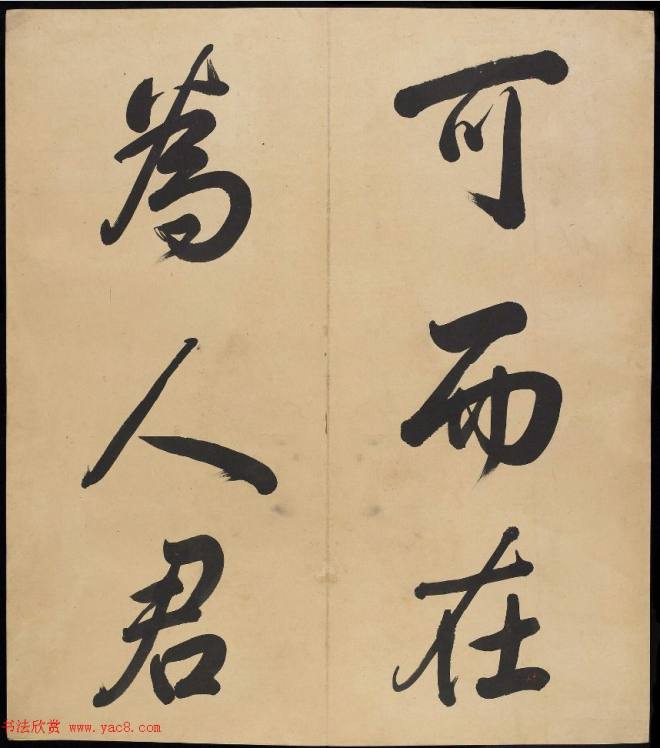 可而在
為人君
书法欣赏 www.yac8.com